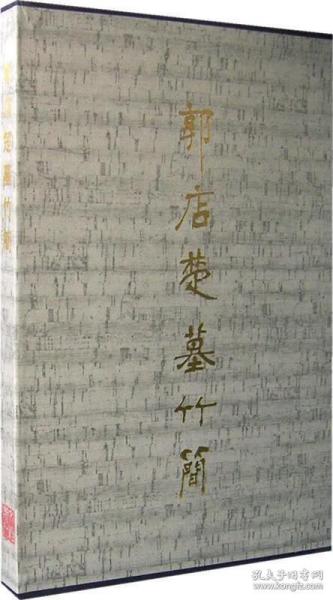 郭店楚墓竹簡
郭店楚墓竹簡
孔夫子旧书网